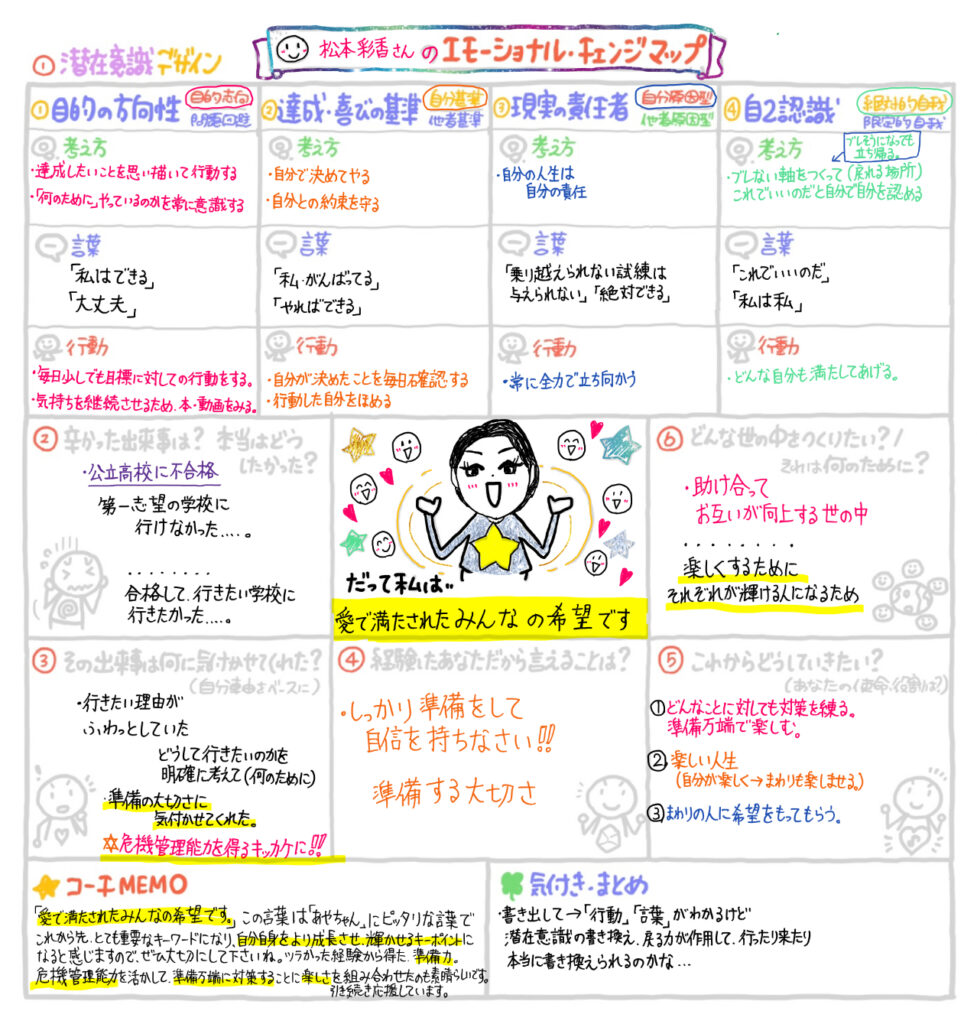 松本彩香さんのエモーショナル・チェンジマップ
① 潜在意識デザイン
①目的の方向性
目的志向
問題回避
②達成・喜びの基準
自分基準
他者基準
③現実の責任者
自分原因型
他者原因型
④自己認識
絶対的自我
限定的自我
考え方
・達成したいことを思い描いて行動する
・「何のために」やっているのかを常に意識する
考え方
・自分で決めてやる
・自分との約束を守る
考え方
・自分の人生は
自分の責任
考え方
ブレそうになっても
立ち帰る。
・ブレない軸をつくって(戻れる場所)
これでいいのだと自分で自分を認める
言葉
「私はできる」
「大丈夫」
言葉
「私・がんばってる」
「やればできる」
言葉
「乗り越えられない試練は
与えられない」「絶対できる」
言葉
「これでいいのだ」
「私は私」
行動
・毎日少しでも目標に対しての行動をする。
・気持ちを継続させるため、本・動画をみる。
行動
・自分が決めたことを毎日確認する
・行動した自分をほめる
行動
・常に全力で立ち向かう
行動
・どんな自分も満たしてあげる。
② 辛かった出来事は? 本当はどう
したかった?
・公立高校に不合格
第一志望の学校に
行けなかった....。
........
合格して、行きたい学校に
行きたかった....。
だって私は..
愛で満たされたみんなの希望です
⑥ どんな世の中をつくりたい?/
それは何のために?
・助け合って
お互いが向上する世の中
........
楽しくするために
それぞれが輝ける人になるため
③ その出来事は何に気付かせてくれた?
(自分理由をベースに)
・行きたい理由が
ふわっとしていた
どうして行きたいのかを
明確に考えて(何のために)
・準備の大切さに
気付かせてくれた。
✡危機管理能力を得るキッカケに!!
④ 経験したあなただから言えることは?
・しっかり準備をして
自信を持ちなさい!!
準備する大切さ
⑤ これからどうしていきたい?
(あなたの使命・役割は?)
①どんなことに対しても対策を練る。
準備万端で楽しむ。
②楽しい人生
(自分が楽しく→まわりも楽しませる)
③まわりの人に希望をもってもらう。
コーチMEMO
「愛で満たされたみんなの希望です。」この言葉は「あやちゃん」にピッタリな言葉で
これから先、とても重要なキーワードになり、自分自身をより成長させ、輝かせるキーポイントに
なると感じますので、ぜひ大切にして下さいね。ツラかった経験から得た、準備力。
危機管理能力を活かして、準備万端に対策することに楽しさを組み合わせたのも素晴らしいです。
引き続き応援しています。
気付き・まとめ
・書き出して→「行動」「言葉」がわかるけど
潜在意識の書き換え、戻る力が作用して、行ったり来たり
本当に書き換えられるのかな...